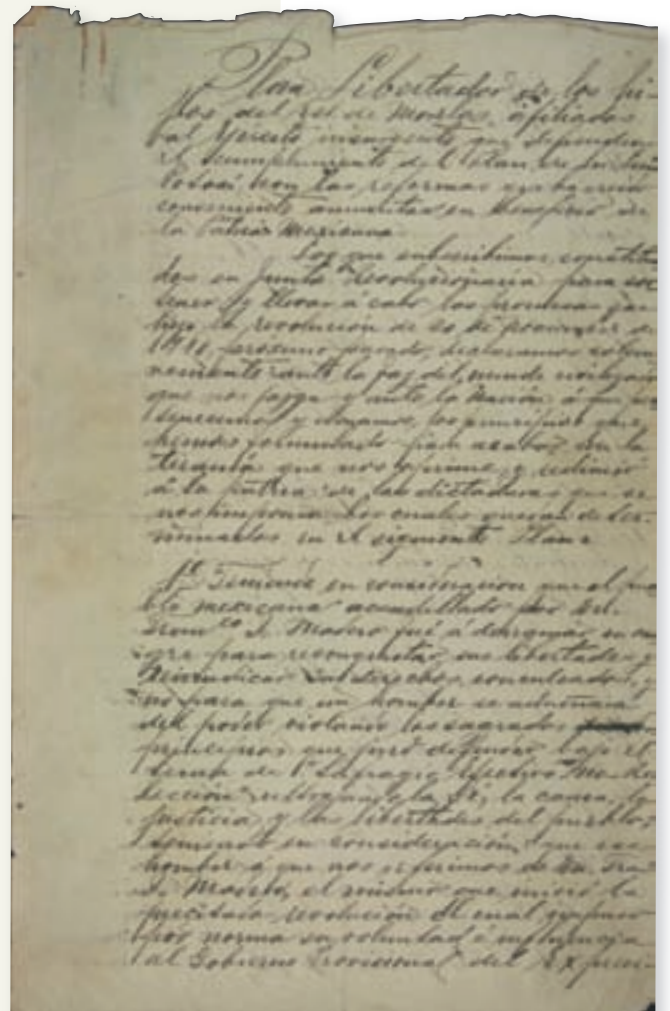 Plan Libertador de los hi-
jos del Est. de Morelos, afiliados
al Ejército insurgente que defienden
el cumplimiento del Plan de San Luis
Potosí, con las reformas que ha creido
conveniente aumentar en beneficio de
la Patria Mexicana.
Los que subscribimos, constitui
dos en Junta Revolucionaria para sos
tener y llevar á cabo las promesas que
hizo la revolución de 20 de Noviembre de
1910, próximo pasado, declaramos solem
nemente ante la faz del mundo civilizado
que nos juzga y ante la Nación á que per
tenecemos y amamos, los principios que
hemos formulado para acabar con la
tiranía que nos oprime y redimir
á la patria de las dictaduras que se
nos imponen las cuales quedan deter-
minadas en el siguiente Plan:
1º Teniendo en consideración que el pue
blo mexicano acaudillado por Dn.
Franco. I. Madero fué á derramar su san
gre para reconquistar sus libertades y
reivindicar sus derechos conculcados, y
no para que un hombre se adueñara
del poder violando los sagrados
principios que juró defender bajo el
lema de "Sufragio Efectivo No Re
elección" ultrajando la fé, la causa, la
justicia y las libertades del pueblo;
teniendo en consideración que ese
hombre á que nos referimos es Dn. Franco.
I. Madero, el mismo que inició la
precitada revolución el cual
por norma su voluntad é influencia
al Gobierno Provisional del Ex presi-